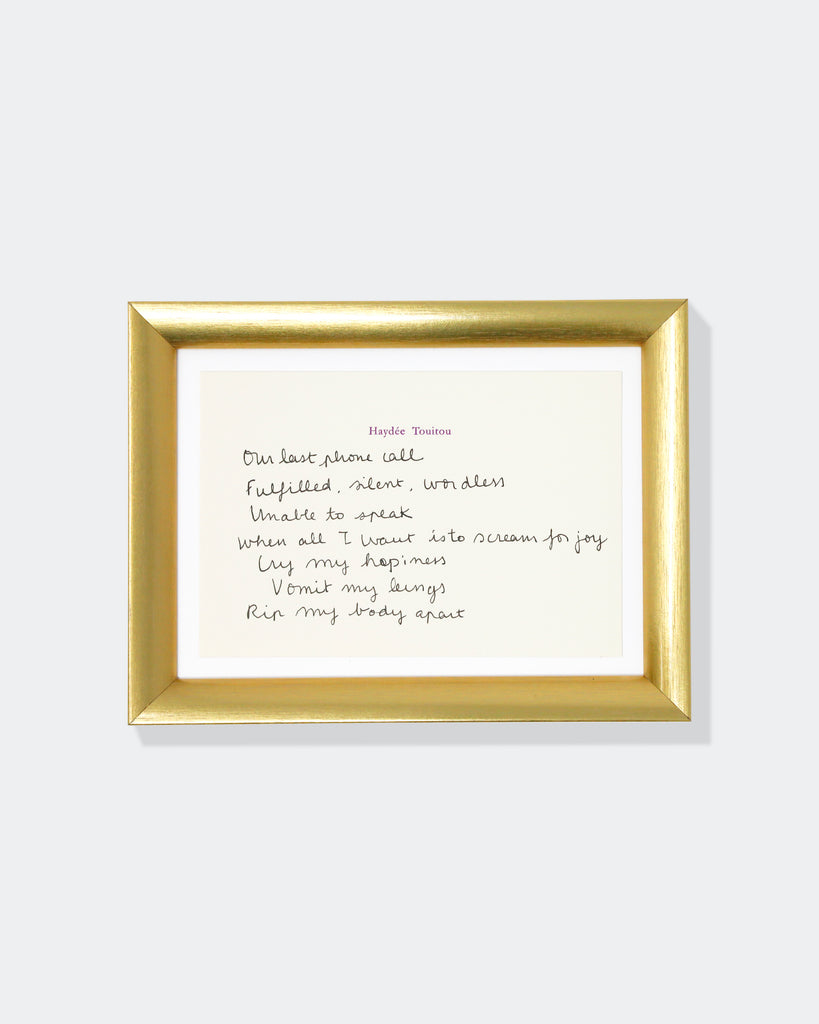 Haydée Touitou
Our last phone call
Fulfilled, silent, wordless
Unable to speak
When all I want is to scream for joy
Cry my hapiness
Vomit my lungs
Rip my body apart